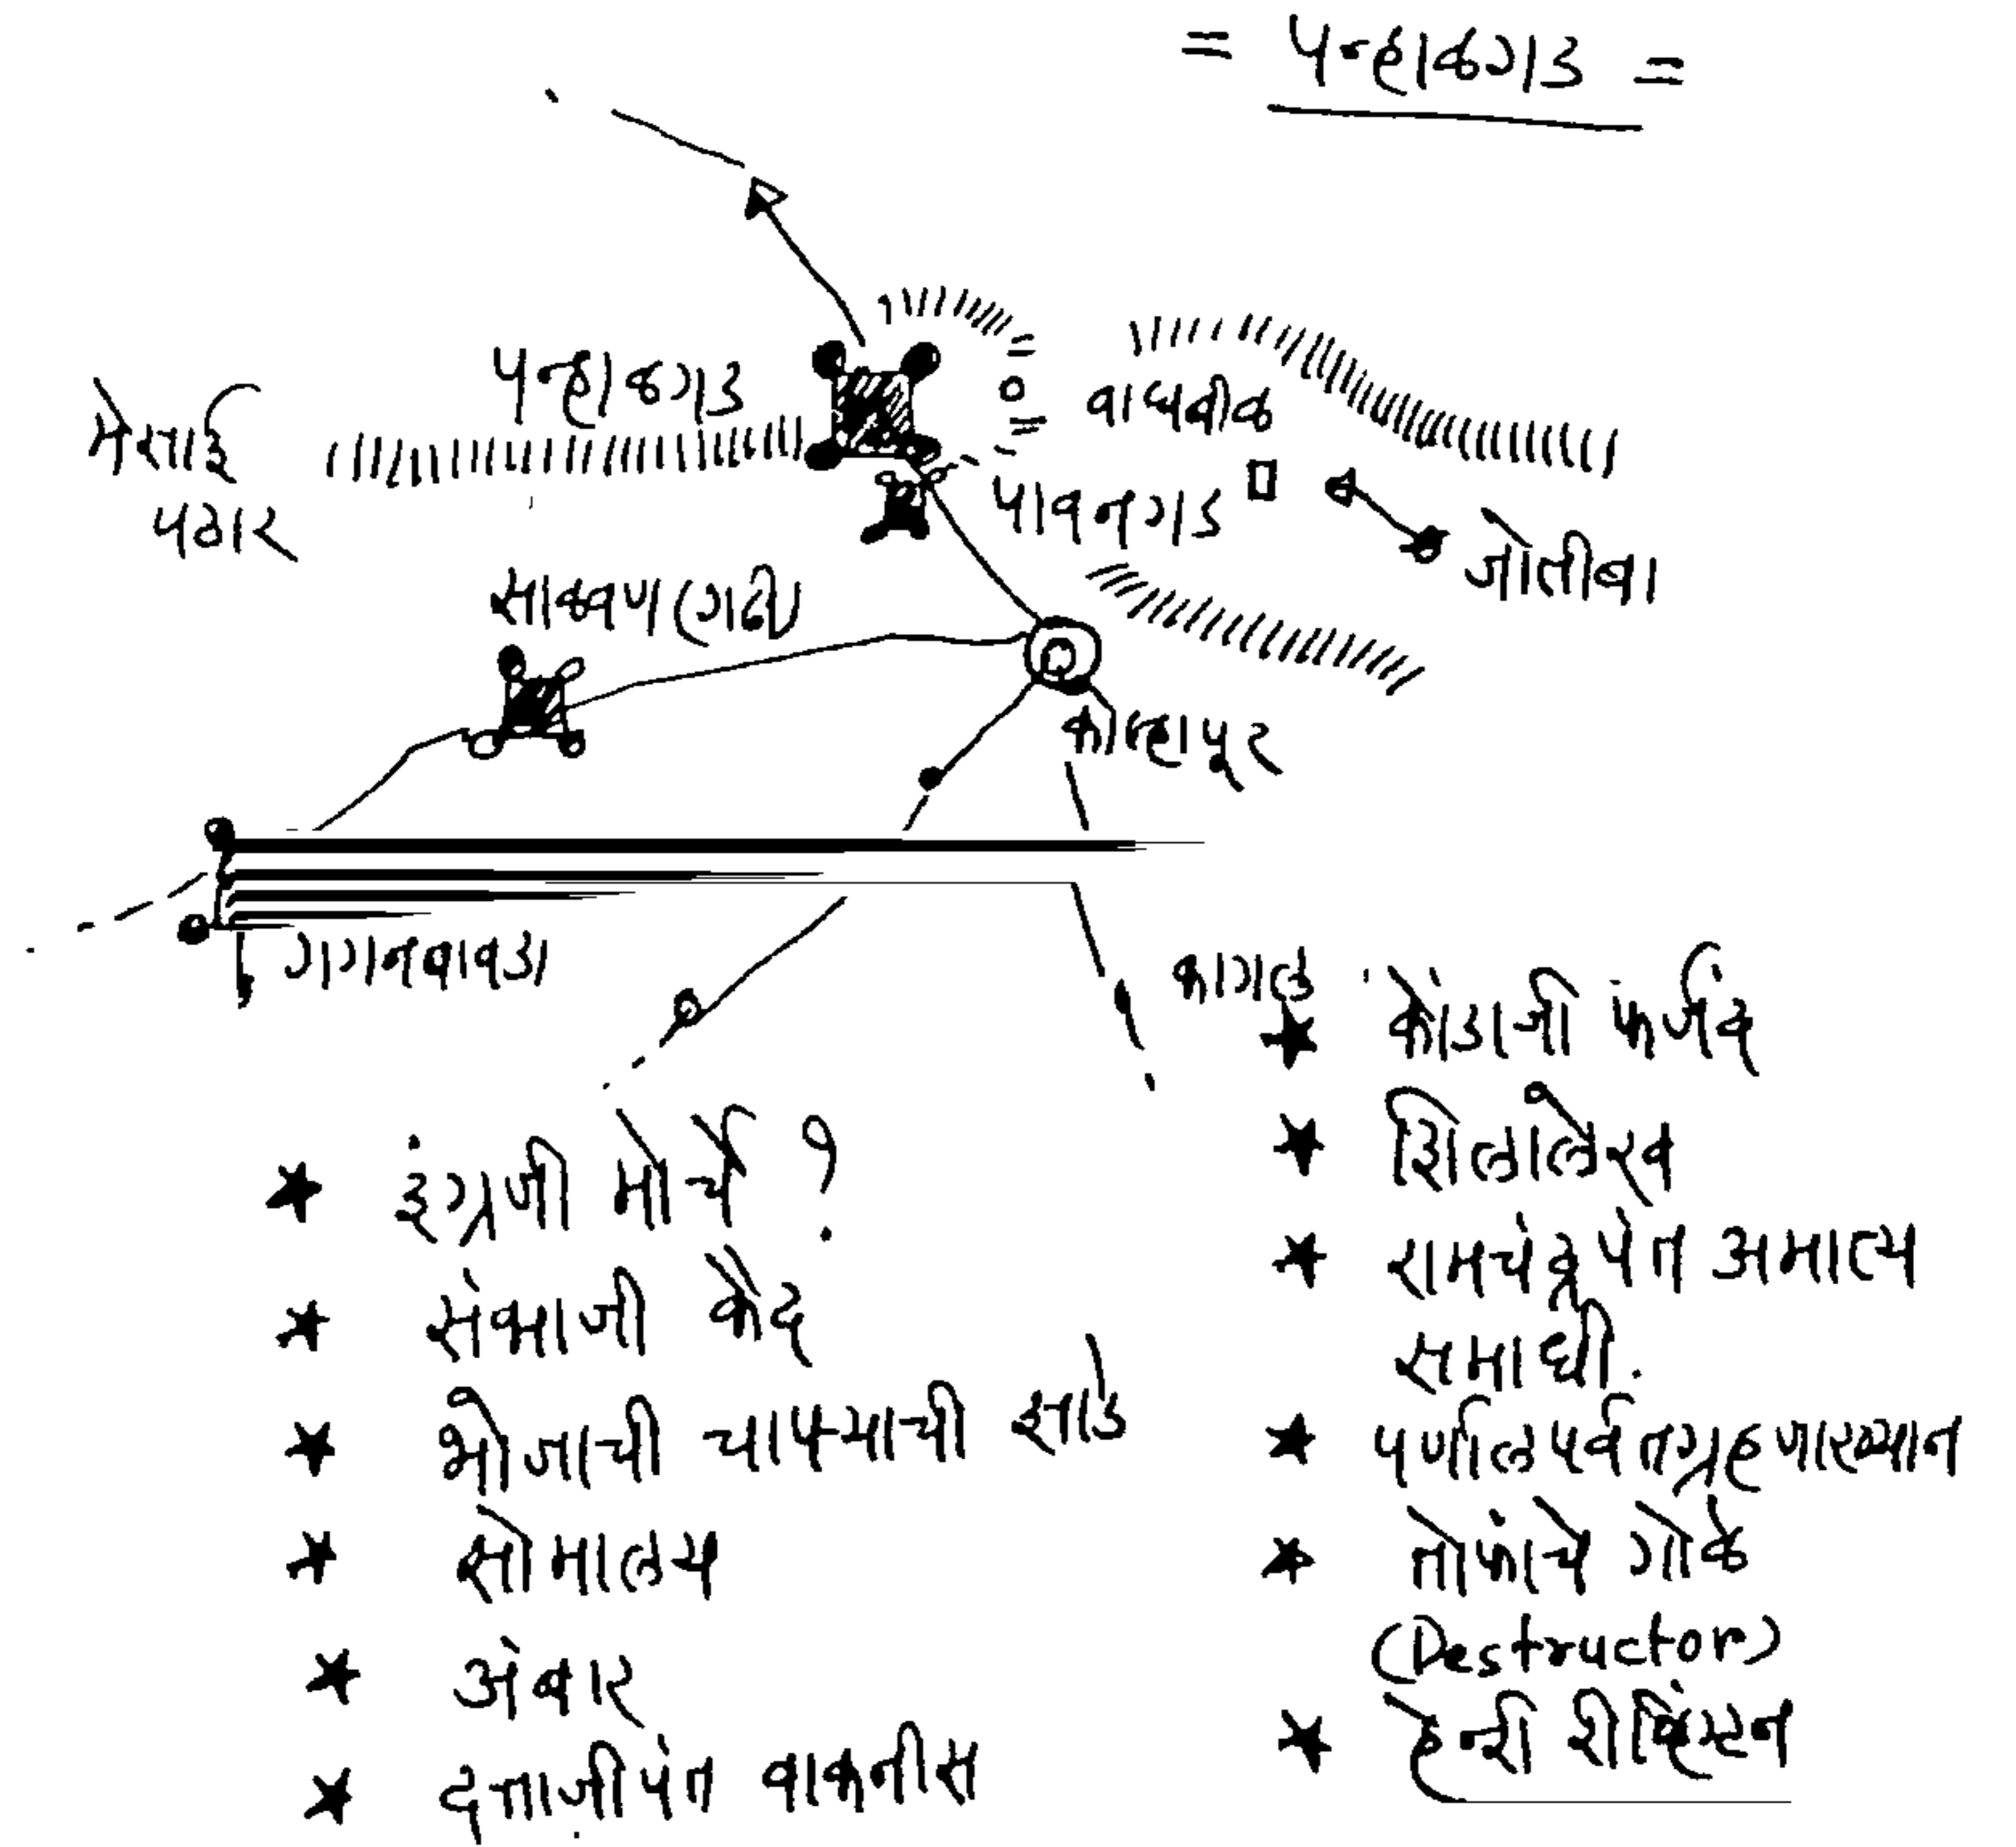 = पन्हाळगड =
पन्हाळगड
मसाई
पठार
वाघबीळ
पावनगड
जोतीबा
साळवण (गढी)
कोल्हापूर
गगनबावडा
कागल
★ इंग्रजी मोर्चे ?
★ संभाजी कैद
★ भोजाची चाफ्याची झाडे
★ सोमालय
★ अंबार
★ दत्ताजीपंत वाकनीस
★ कोंडाजी फर्जंद
★ शिलालेख
★ रामचंद्रपंत अमात्य
समाधी.
★ पर्णालपर्वतग्रहणाख्यान
★ तोफांचे गोळे
(Destructor)
★ हेन्री रेव्हिंग्टन